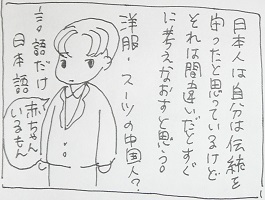 日本人は自分は伝統を
守ったと思っているけど
それは間違いだとすぐ
に考えなおすと思う。
洋服・スーツの中国人?
言語だけ
日本語
赤ちゃん
いるもん